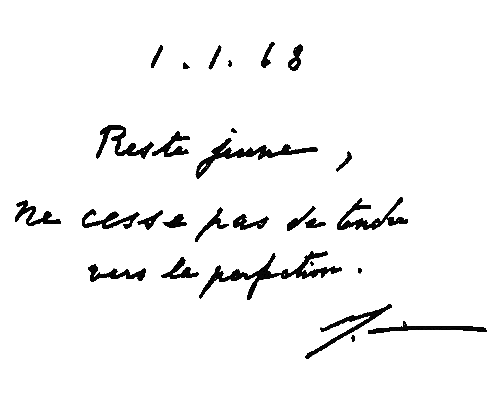 1.1.68
Reste jeune,
ne cesse pas de tendre
vers la perfection.